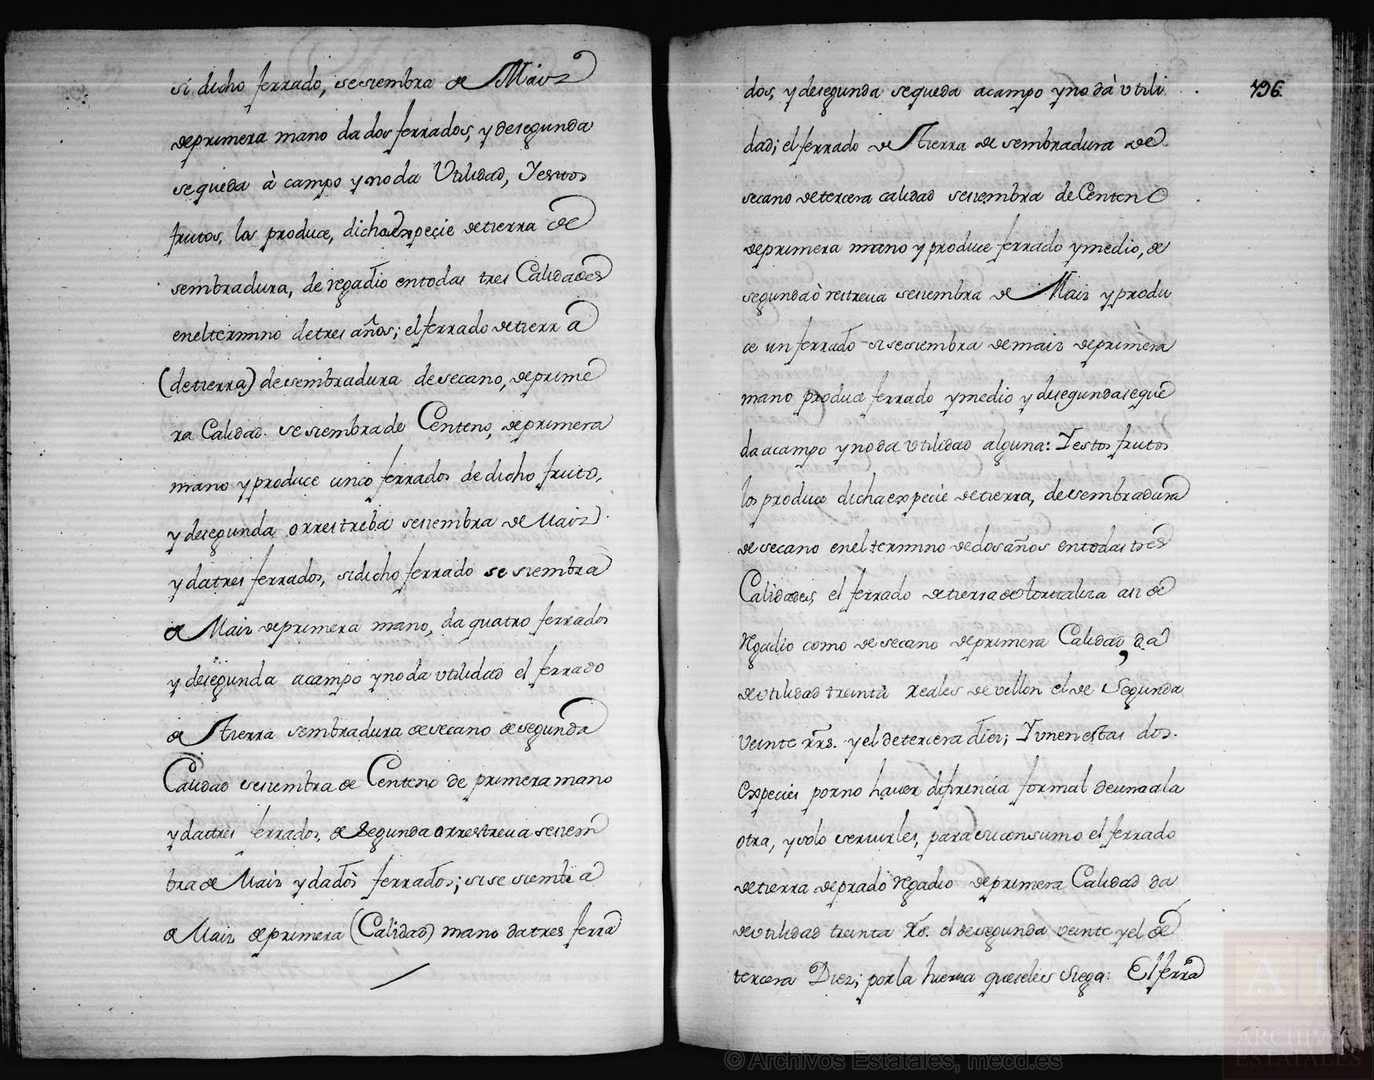 si dicho ferrado, sesiembra de Maiz
deprimera mano da dos ferrados, y desegunda
sequeda à campo ynoda Utilidad, Yestos
frutos, los produce, dicha Expecie detierra de
sembradura, de regadio entodas tres Calidades
eneltermino detres años; elferrado detierra
(detierra) desembradura desecano, deprime
ra Calidad. sesiembrade Centeno, deprimera
mano yproduce cinco ferrados dedicho fruto,
y desegunda orrestreba sesiembra de Maiz
ydatres ferrados, sidicho ferrado se siembra
de Maiz deprimera mano, da quatro ferrados
y desegunda acampo ynoda utilidad el ferrado
de tierra sembradura desecano desegunda
Calidad sesiembra de Centeno de primera mano
ydatres ferrados, de Segunda orrestreva sesiem
bra de Maiz ydados ferrados; sise siembra
de Maiz deprimera (Calidad) mano datres ferra
dos, y desegunda sequeda acampo ynodà utili
dad; elferrado de tierra de sembradura de
secano detercera calidad sesiembra deCenteno
deprimera mano yproduce ferrado ymedio, de
segunda ò restreva sesiembra de Maiz yprodu
ce unferrado sisesiembra demaiz deprimera
mano produce ferrado ymedio y desegundaseque
da acampo ynoda utilidad alguna: Yestos frutos
los produce dichaexpecie detierra, desembradura
desecano eneltermino dedosaños entodas tres
Calidades, el ferrado detierra de ortaliza asi de
Regadio como desecano deprimera Calidad, da
deutilidad treinta Reales devellon elde Segunda
Veinte rrs. yel detercera diez; Yunen estas dos
expecies porno haver difrencia formal deunaala
otra, ysolo servirles, para su consumo el ferrado
detierra deprado Regadio deprimera Calidad da
deutilidad treinta Rs. el desegunda veinte yel de
tercera Diez; porla hierva queseles siega: Elferra
496.
© Archivos Estatales, mecd.es
ARCHIVOS
ESTATALES